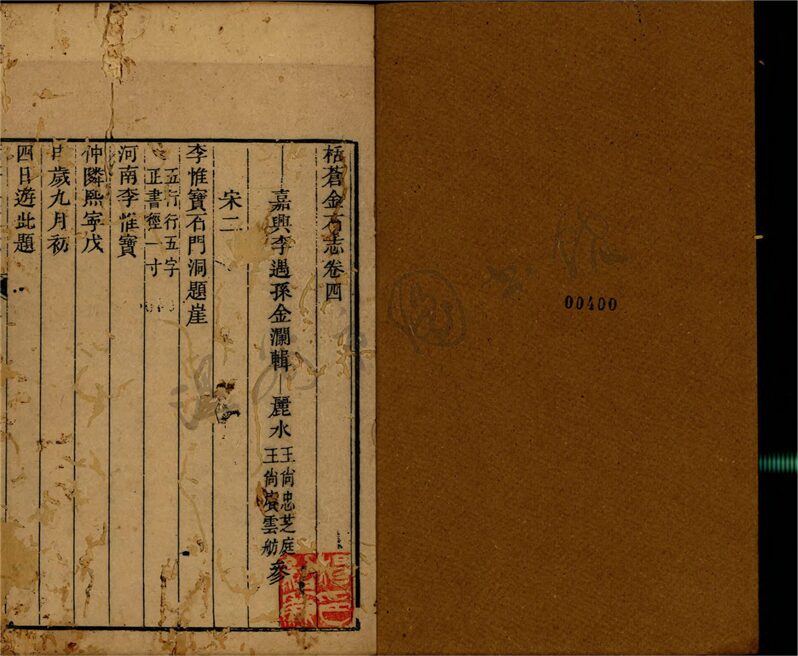 栝蒼金石志卷四
嘉興李遇孫金瀾輯 麗水
王尙忠芝庭
王尙賡雲舫
參
宋二
李惟寶石門洞題崖
五行行五字
正書徑一寸
河南李惟寶
仲隣熙寧戊
申歲九月初
四日遊此題
00400